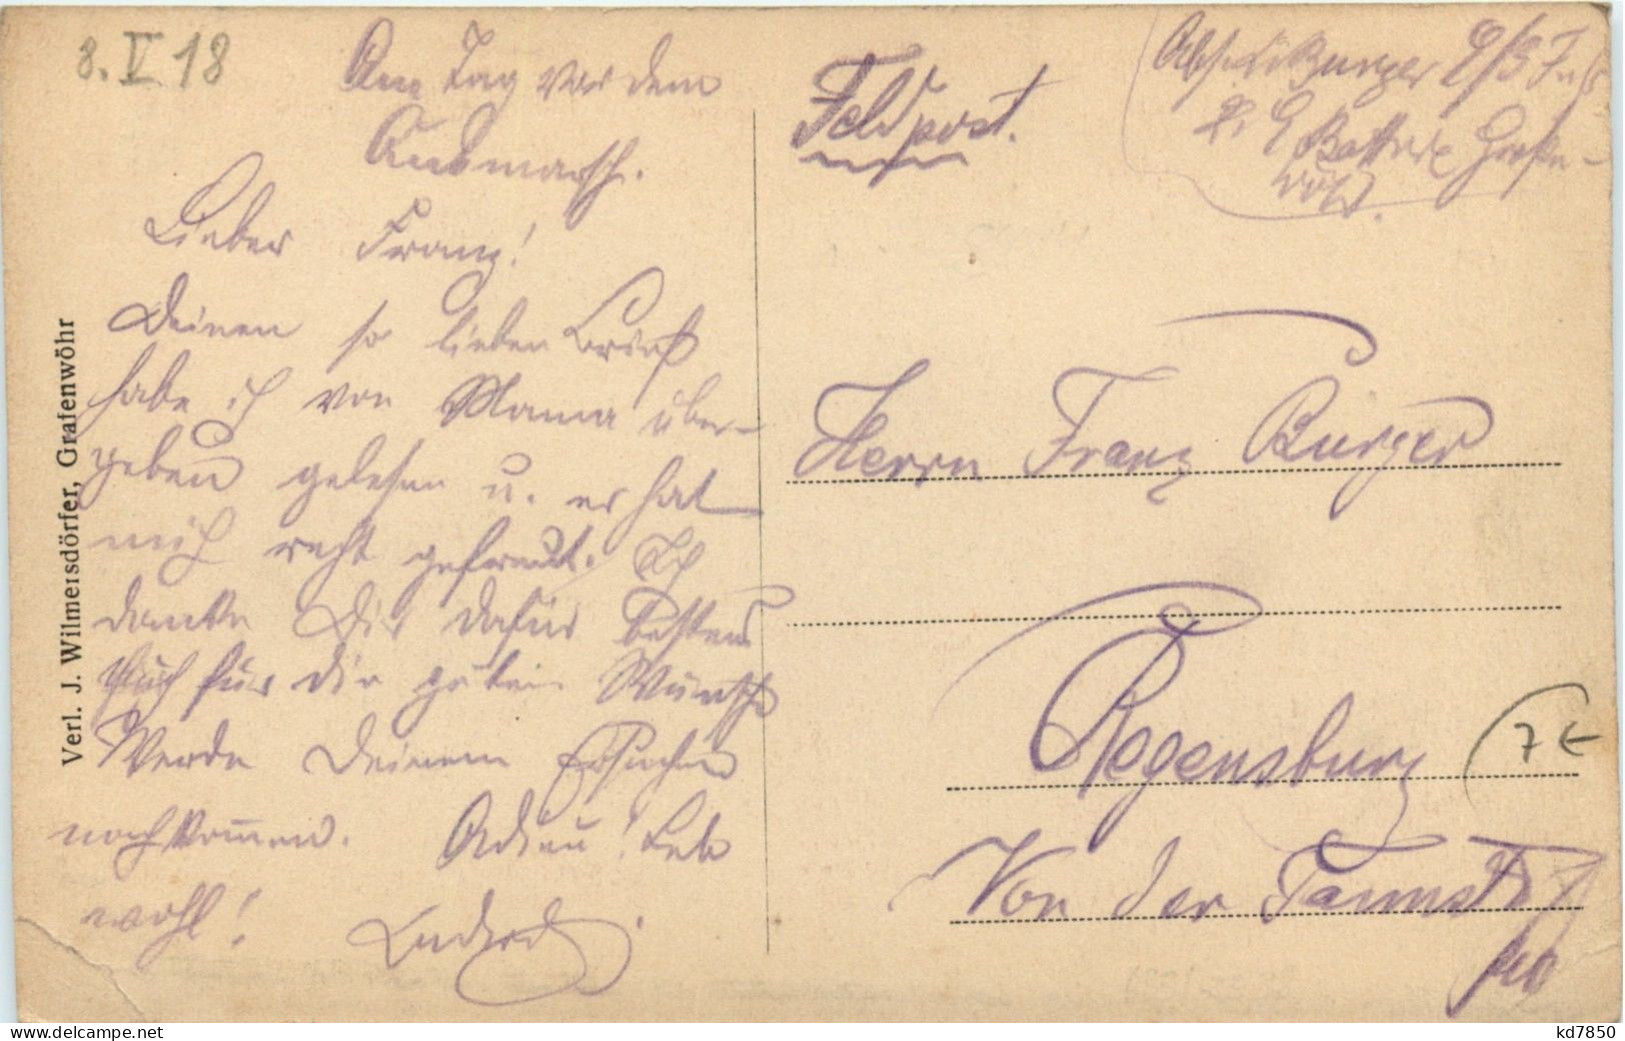 8. V 18
Am Tag vor dem
Ausmarsch.
Lieber Franz!
Deinen so lieben Brief
habe ich von Mama über-
geben gelesen u. er hat
mich recht gefreut. Ich
danke Dir dafür bestens
Auch für die guten Wünsche
Werde Deinem Ersuchen
nachkommen. Adieu! Lebe
wohl!
Verl. J. Wilmersdörfer, Grafenwöhr
Feldpost.
Abs. Burger
Batterie Grafen-
wöhr.
Herrn Franz Burger
Regensburg
Von der Tannstr.
7 €
kd7850